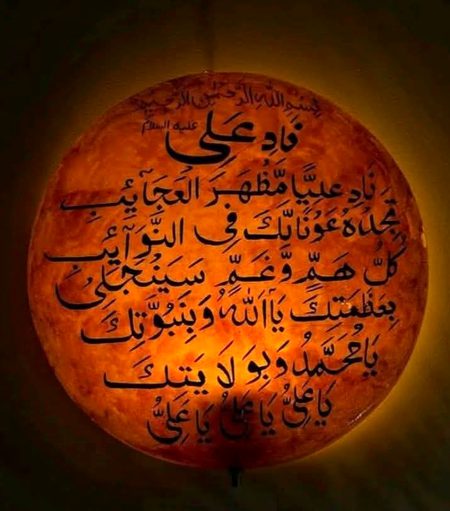 بسم الله الرحمن الرحيم
نَادِ عَلِي عليه السلام
نَادِ عَلِيًّا مَّظْهَرَ الْعَجَآئِبِ
تَجِدْهُ عَوْنًا لَّكَ فِى النَّوَآئِبِ
كُلُّ هَمٍّ وَّغَمٍّ سَيَنْجَلِىْ
بِعَظْمَتِكَ يَا اَللّٰهُ وَبِنُبُوَّتِكَ
يَا مُحَمَّدُ وَبِوَلَا يَتِكَ
يَا عَلِيُّ يَا عَلِيُّ يَا عَلِيُّ